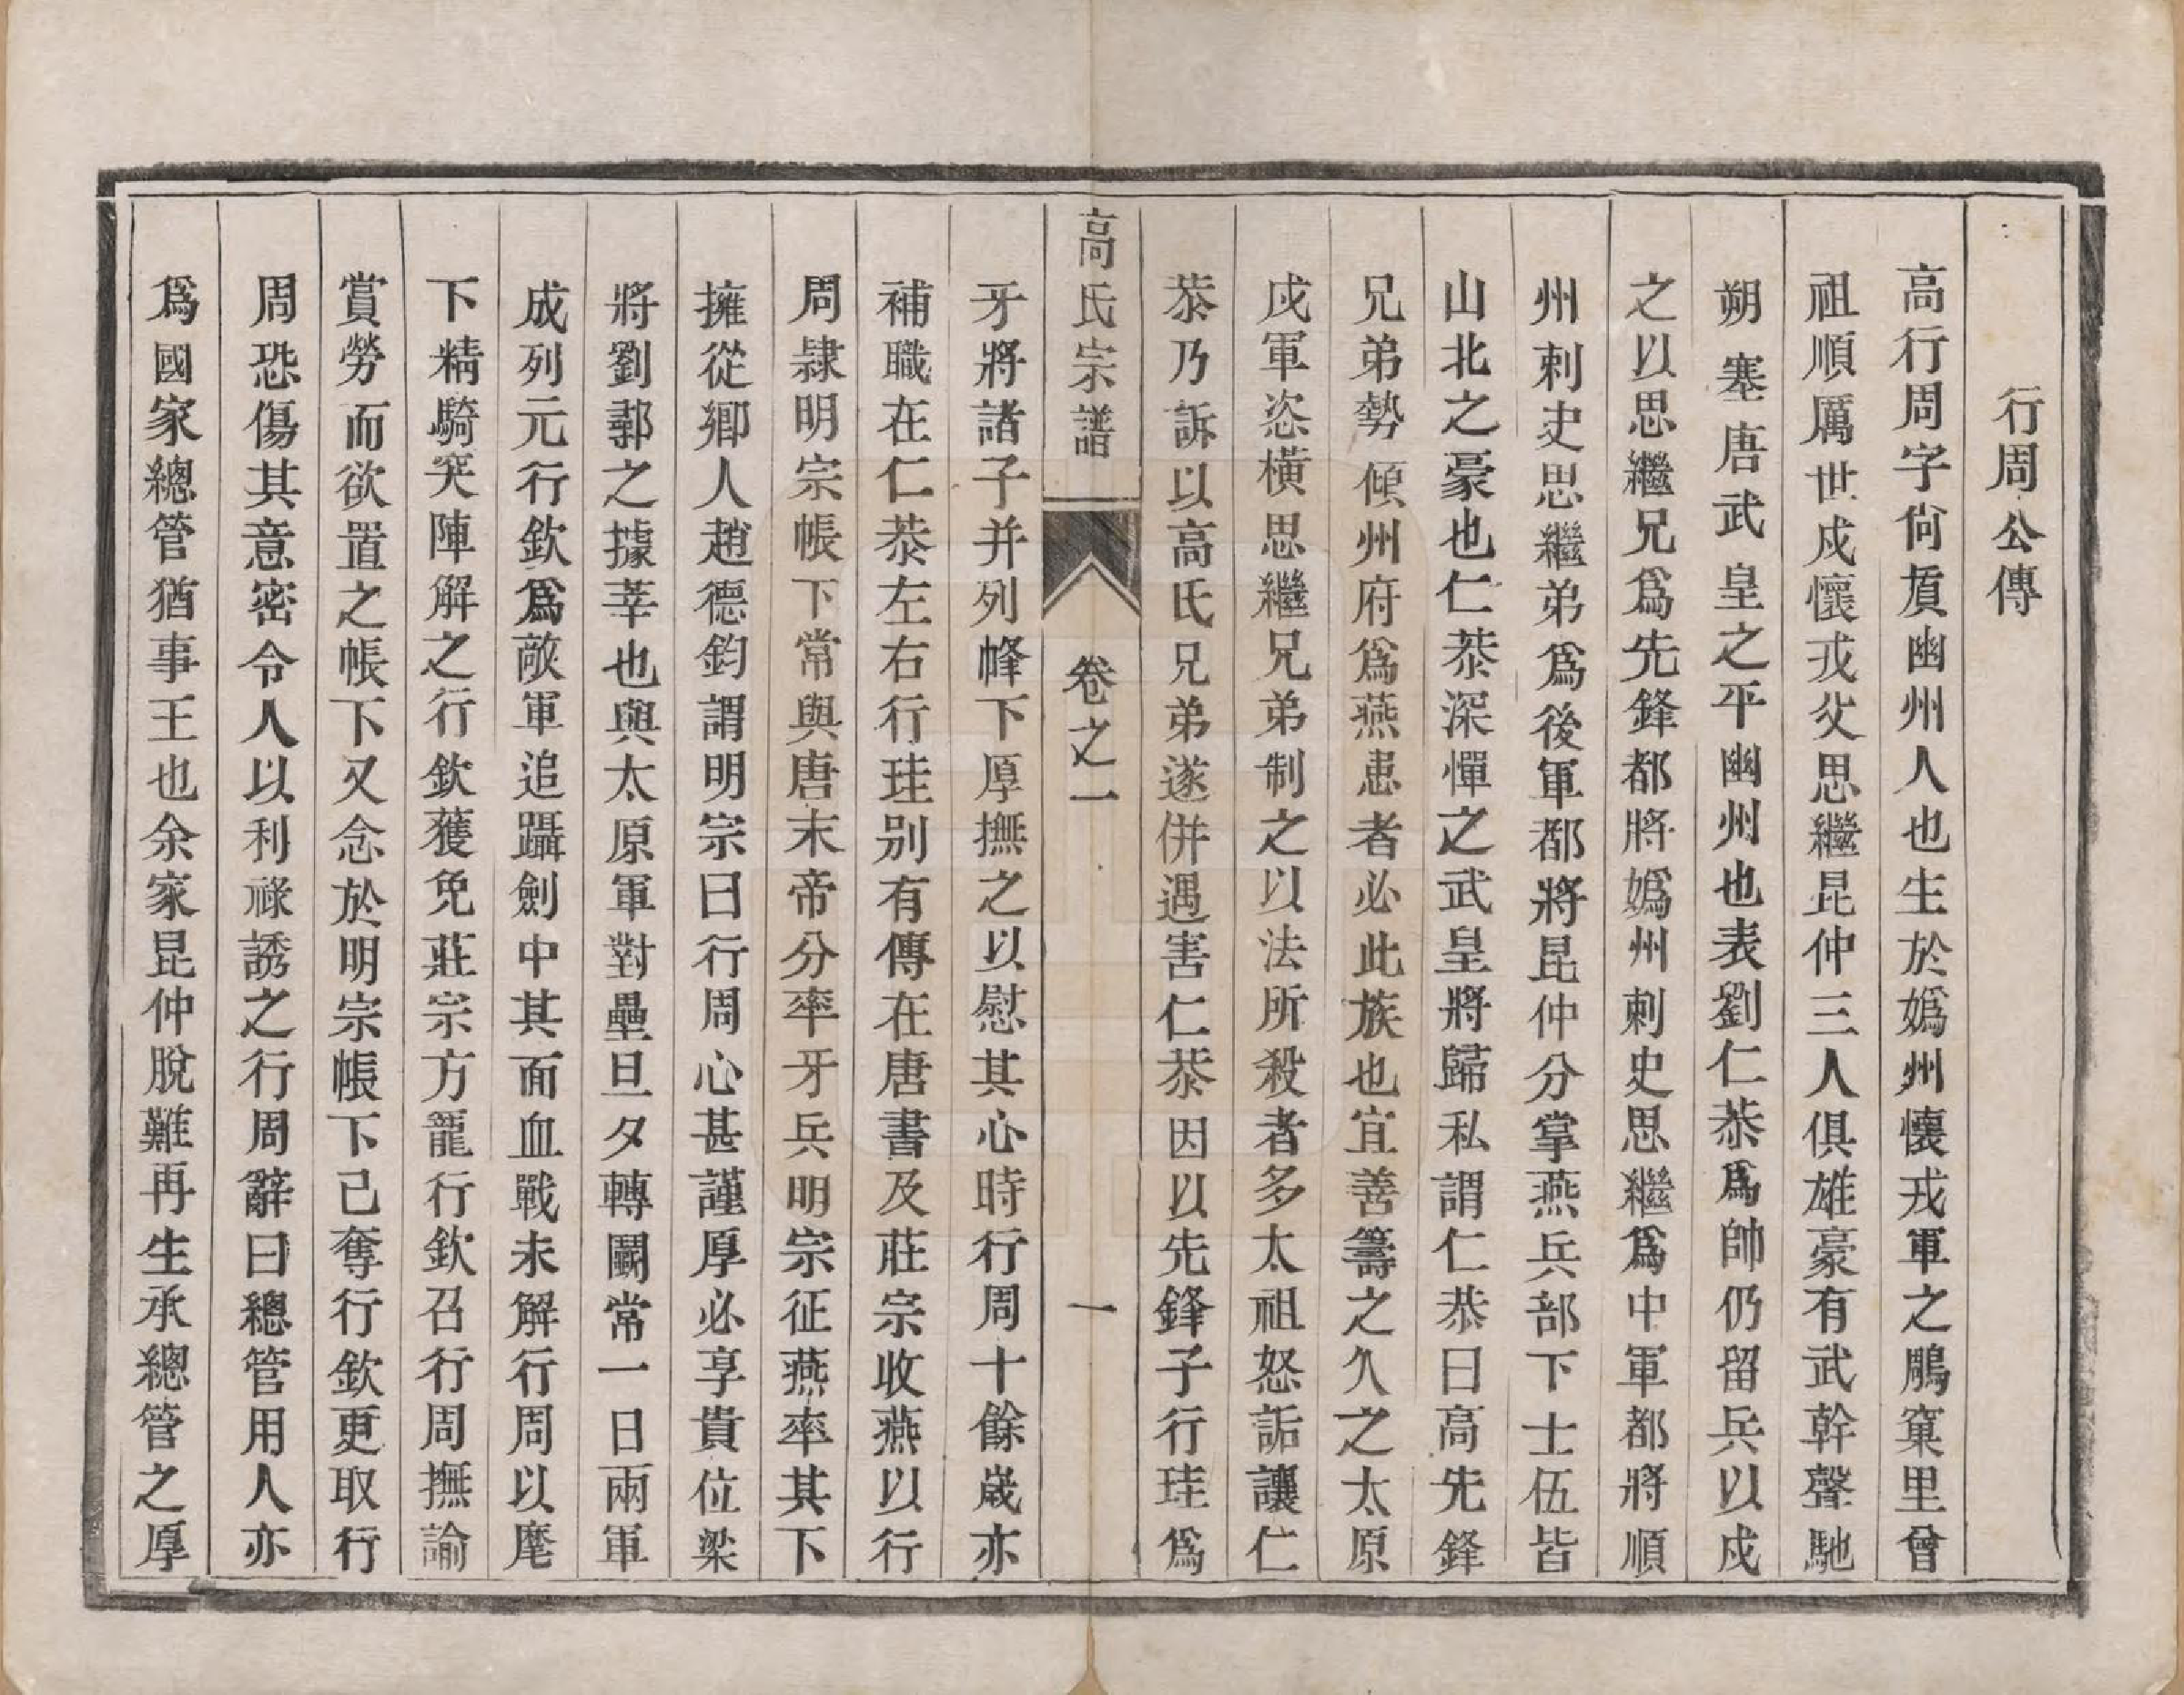 行周公傳
高行周字尙質幽州人也生於嬀州懷戎軍之鵰窠里曾
祖順厲世戍懷戎父思繼昆仲三人俱雄豪有武幹聲馳
朔塞唐武皇之平幽州也表劉仁恭爲帥仍留兵以戍
之以思繼兄爲先鋒都將嬀州刺史思繼爲中軍都將順
州刺史思繼弟爲後軍都將昆仲分掌燕兵部下士伍皆
山北之豪也仁恭深憚之武皇將歸私謂仁恭曰高先鋒
兄弟勢傾州府爲燕患者必此族也宜善籌之久之太原
戍軍恣橫思繼兄弟制之以法所殺者多太祖怒詬讓仁
恭乃訴以高氏兄弟遂併遇害仁恭因以先鋒子行珪爲
高氏宗譜
卷之一
一
牙將諸子并列帳下厚撫之以慰其心時行周十餘歲亦
補職在仁恭左右行珪別有傳在唐書及莊宗收燕以行
周隸明宗帳下常與唐末帝分率牙兵明宗征燕率其下
擁從鄉人趙德鈞謂明宗曰行周心甚謹厚必享貴位梁
將劉鄩之據莘也與太原軍對壘旦夕轉鬭常一日兩軍
成列元行欽爲敵軍追躡劍中其面血戰未解行周以麾
下精騎突陣解之行欽獲免莊宗方寵行欽召行周撫諭
賞勞而欲置之帳下又念於明宗帳下已奪行欽更取行
周恐傷其意密令人以利祿誘之行周辭曰總管用人亦
爲國家總管猶事王也余家昆仲脫難再生承總管之厚